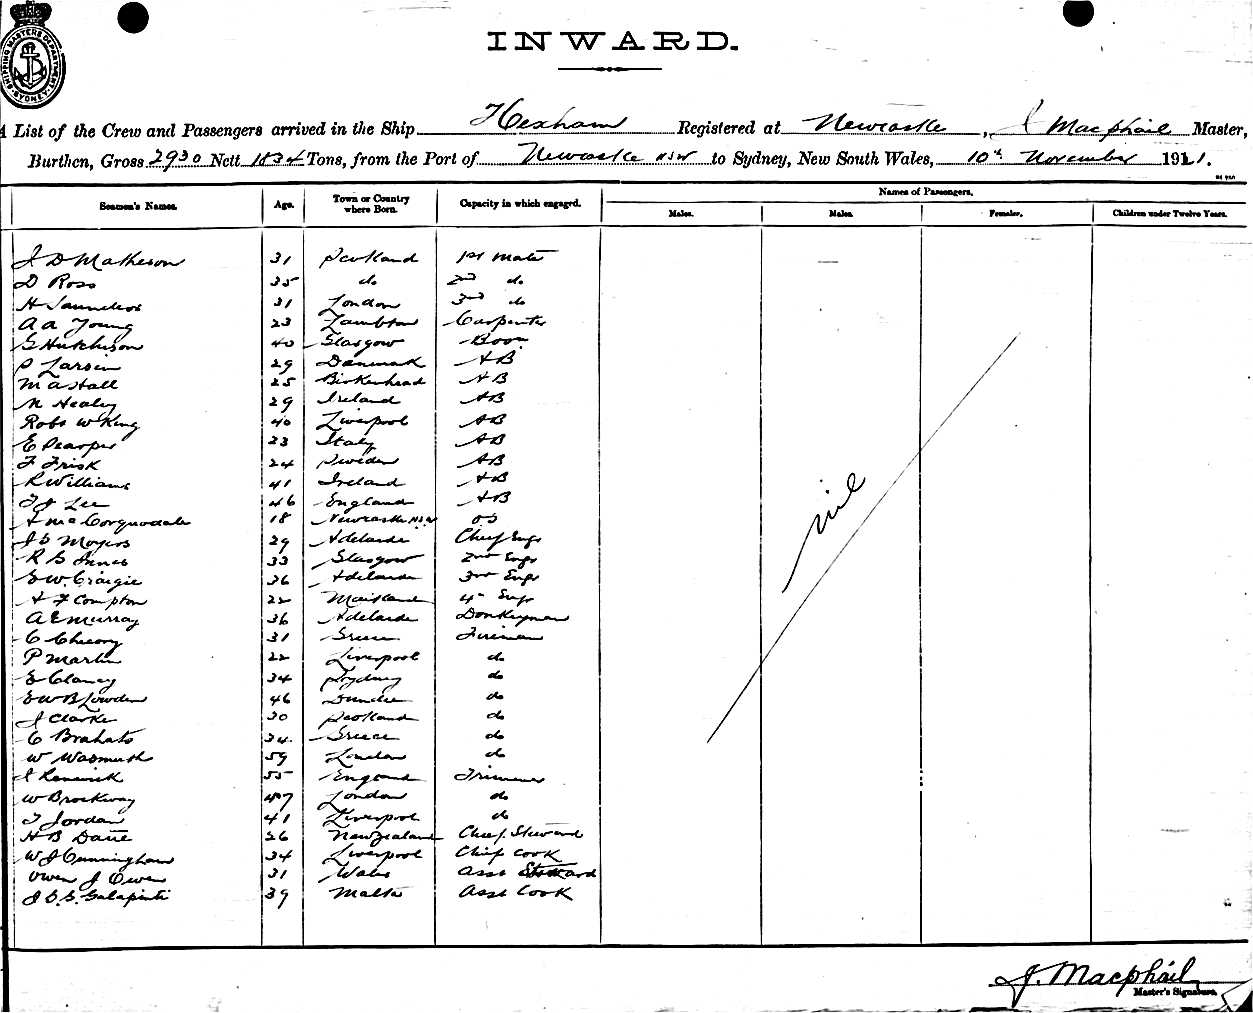 SHIPPING MASTERS DEPARTMENT SYDNEY
INWARD.
A List of the Crew and Passengers arrived in the Ship Hexham Registered at Newcastle, J Macphail Master,
Burthen, Gross 2930 Nett Tons, from the Port of Newcastle NSW to Sydney, New South Wales, 10th November 1911.
Seamen's Names. Age. Town or Country where Born. Capacity in which engaged. Names of Passengers.
Males. Males. Females. Children under Twelve Years.
J D Matheson 31 Scotland 1st Mate
D Ross 35 do 2nd do
H Saunders 31 London 3rd do
A A Young 23 Lambton Carpenter
G Hutchison 40 Glasgow Bosn
P Larsen 29 Denmark AB
M A Hall 25 Birkenhead AB
N Healey 29 Ireland AB
Robt W King 40 Liverpool AB
E 23 Italy AB
F Frisk 24 Sweden AB
R Williams 41 Ireland AB
T J Lee 46 England AB
A McCorquodale 18 Newcastle NSW OS
J S Moyers 29 Adelaide Chief Engr
R G Innes 33 Glasgow 2nd Engr
E W. Craigie 26 Adelaide 3rd Engr
A F Compton 22 Maitland 4th Engr
A E Murray 36 Adelaide Donkeyman
C 31 Greece Fireman
P Martin 22 Liverpool do
E Clancy 34 Sydney do
E W B Lowden 46 Dundee do
J Clarke 30 Scotland do
C Brahato 34 Greece do
W Wasmuth 59 London do
J Renwick 55 England Trimmer
W Brockway 47 London do
T Jordan 41 Liverpool do
H B Dane 26 New Zealand Chief Steward
W J Cunningham 34 Liverpool Chief Cook
Owen J Owen 31 Wales Asst Steward
J 39 Malta Asst Cook
nil
J. Macphail
Master's Signature.